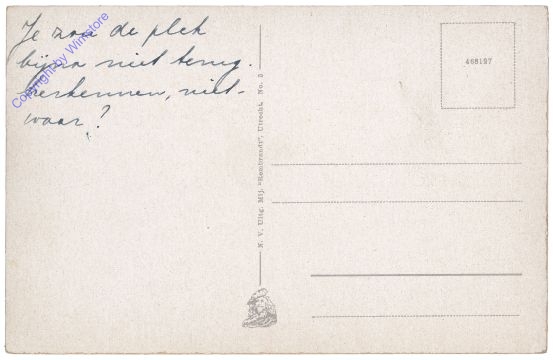 Je zou de plek
bijna niet terug.
herkennen, niet-
waar?
Copyright by Wimstore
468197
N. V. Uitg. Mij. "Rembrandt", Utrecht. No. 3